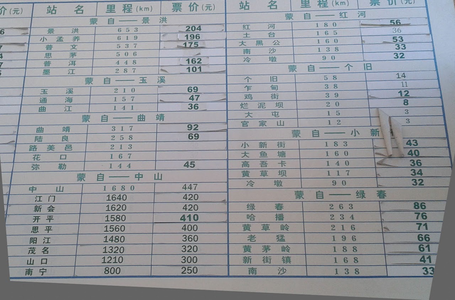 站名 里程(km) 票价(元)
蒙自——景洪
景洪 653 204
小孟养 619 196
普文 537 175
思茅 506
普洱 448 162
墨江 287 101
蒙自——玉溪
玉溪 210 69
通海 157 47
曲江 141 36
蒙自——曲靖
曲靖 317 92
陆良 258 69
路美邑 213
花口 167
弥勒 144 45
蒙自——中山
中山 1680 447
江门 1640 420
新会 1620 420
开平 1580 410
恩平 1560 400
阳江 1480 360
茂名 1320 320
山口 1210 300
南宁 800 250
站名 里程(km) 票价(元)
蒙自——红河
红河 180 56
土台 165 36
大黑公 160
南沙 138 33
冷墩 90 32
蒙自——个旧
个旧 58 14
乍甸 38 11
鸡街 39 12
烂泥坝 20 8
大屯 15 3
官家山 12 3
蒙自——小新
小新街 183 43
大鱼塘 160 40
高吾卡 140 36
黄草坝 117 34
冷墩 90 32
蒙自——绿春
绿春 263 86
哈播 234 76
黄草岭 216 71
老猛 196 66
黄茅岭 188 61
新街镇 168 41
南沙 138 33